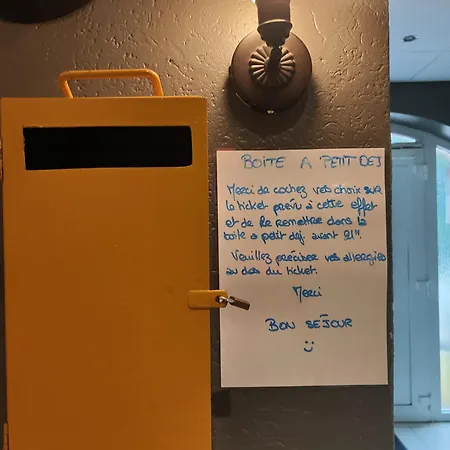 BOITE A PETIT DEJ
Merci de cochez vos choix sur
le ticket prévu à cette effet
et de le remettre dans la
boite a petit dej. avant 21H.
Veuillez préciser vos allergies
au dos du ticket.
Merci
BON SEJOUR